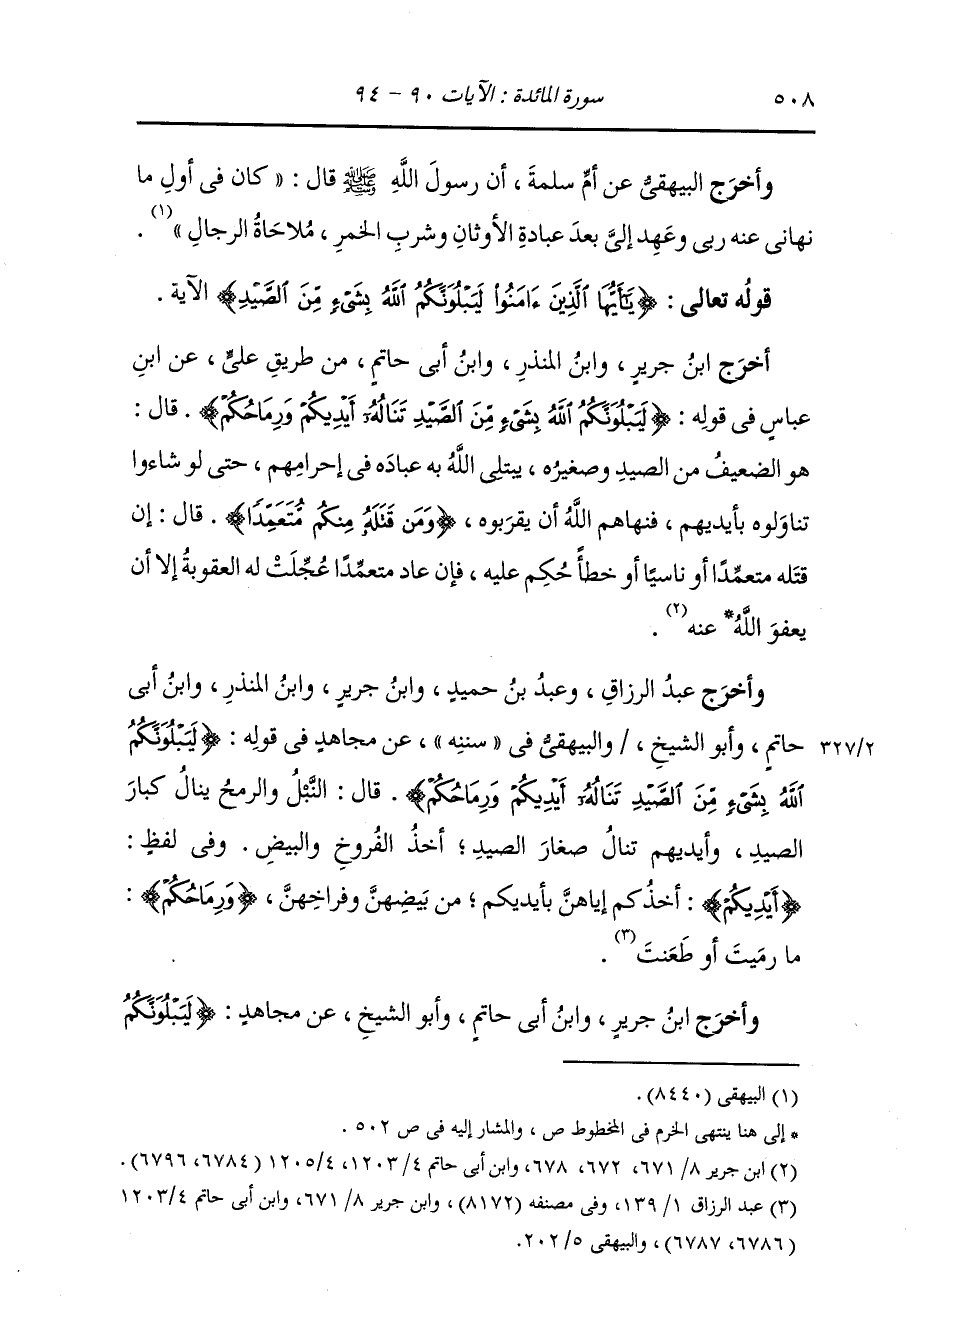 ٥٠٨ سورة المائدة : الآيات ٩٠ - ٩٤
وأخرَج البيهقىُّ عن أمِّ سلمةَ ، أن رسولَ اللَّهِ ﷺ قال : « كان فى أولِ ما
نهانى عنه ربى وعَهِد إلىَّ بعدَ عبادةِ الأوثانِ وشربِ الخمرِ ، مُلاحَاةُ الرجالِ »(١) .
قولُه تعالى : ﴿يَٰٓأَيُّهَا ٱلَّذِينَ ءَامَنُوا۟ لَيَبْلُوَنَّكُمُ ٱللَّهُ بِشَىْءٍ مِّنَ ٱلصَّيْدِ﴾ الآية .
أخرَج ابنُ جريرٍ ، وابنُ المنذرِ ، وابنُ أبى حاتمٍ ، من طريقِ علىٍّ ، عن ابنِ
عباسٍ فى قولِه : ﴿لَيَبْلُوَنَّكُمُ ٱللَّهُ بِشَىْءٍ مِّنَ ٱلصَّيْدِ تَنَالُهُۥٓ أَيْدِيكُمْ وَرِمَاحُكُمْ﴾ . قال :
هو الضعيفُ من الصيدِ وصغيرُه ، يبتلِى اللَّهُ به عبادَه فى إحرامِهم ، حتى لو شاءوا
تناوَلوه بأيديهم ، فنهاهم اللَّهُ أن يقرَبوه ، ﴿وَمَن قَتَلَهُۥ مِنكُم مُّتَعَمِّدًا﴾ . قال : إن
قتَله متعمِّدًا أو ناسيًا أو خطأً حُكِم عليه ، فإن عاد متعمدًا عُجِّلَتْ له العقوبةُ إلا أن
يعفوَ اللَّهُ* عنه(٢) .
وأخرَج عبدُ الرزاقِ ، وعبدُ بنُ حميدٍ ، وابنُ جريرٍ ، وابنُ المنذرِ ، وابنُ أبى
٣٢٧/٢ حاتمٍ ، وأبو الشيخِ ، / والبيهقىُّ فى « سننِه » ، عن مجاهدٍ فى قولِه : ﴿لَيَبْلُوَنَّكُمُ
ٱللَّهُ بِشَىْءٍ مِّنَ ٱلصَّيْدِ تَنَالُهُۥٓ أَيْدِيكُمْ وَرِمَاحُكُمْ﴾ . قال : النَّبْلُ والرمحُ ينالُ كبارَ
الصيدِ ، وأيديهم تنالُ صغارَ الصيدِ ؛ أخذُ الفُروخِ والبيضِ . وفى لفظٍ :
﴿أَيْدِيكُمْ﴾ : أخذُكم إياهنَّ بأيديكم ؛ من بَيضِهنَّ وفراخِهنَّ ، ﴿وَرِمَاحُكُمْ﴾ :
ما رمَيتَ أو طَعَنتَ(٣) .
وأخرَج ابنُ جريرٍ ، وابنُ أبى حاتمٍ ، وأبو الشيخِ ، عن مجاهدٍ : ﴿لَيَبْلُوَنَّكُمُ
(١) البيهقى (٨٤٤٠) .
* إلى هنا ينتهى الخرم فى المخطوط ص ، والمشار إليه فى ص ٥٠٢ .
(٢) ابن جرير ٨/ ٦٧١، ٦٧٢، ٦٧٨، وابن أبى حاتم ٤/ ١٢٠٣، ١٢٠٥/٤ (٦٧٨٤، ٦٧٩٦) .
(٣) عبد الرزاق ١/ ١٣٩، وفى مصنفه (٨١٧٢) ، وابن جرير ٨/ ٦٧١، وابن أبى حاتم ١٢٠٣/٤
(٦٧٨٦، ٦٧٨٧) ، والبيهقى ٥/ ٢٠٢.